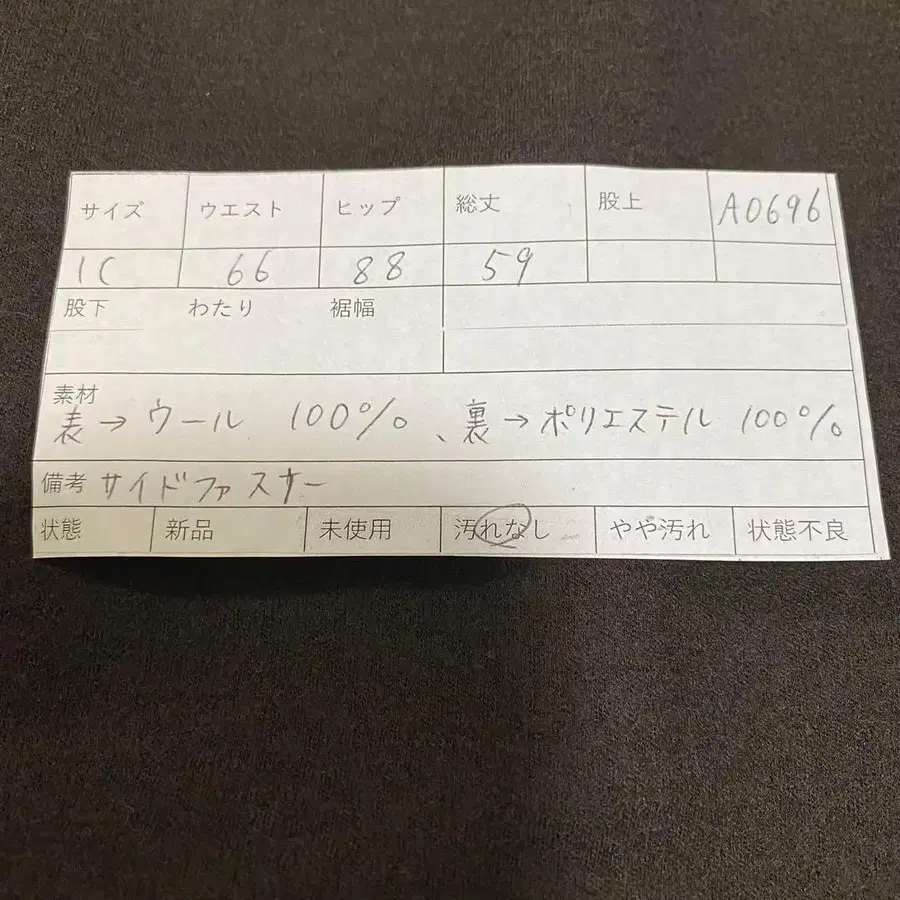 サイズ ウエスト ヒップ 総丈 股上 A0696
1C 66 88 59
股下 わたり 裾幅
素材
表→ウール 100%、裏→ポリエステル 100%
備考 サイドファスナー
状態 新品 未使用 汚れなし やや汚れ 状態不良